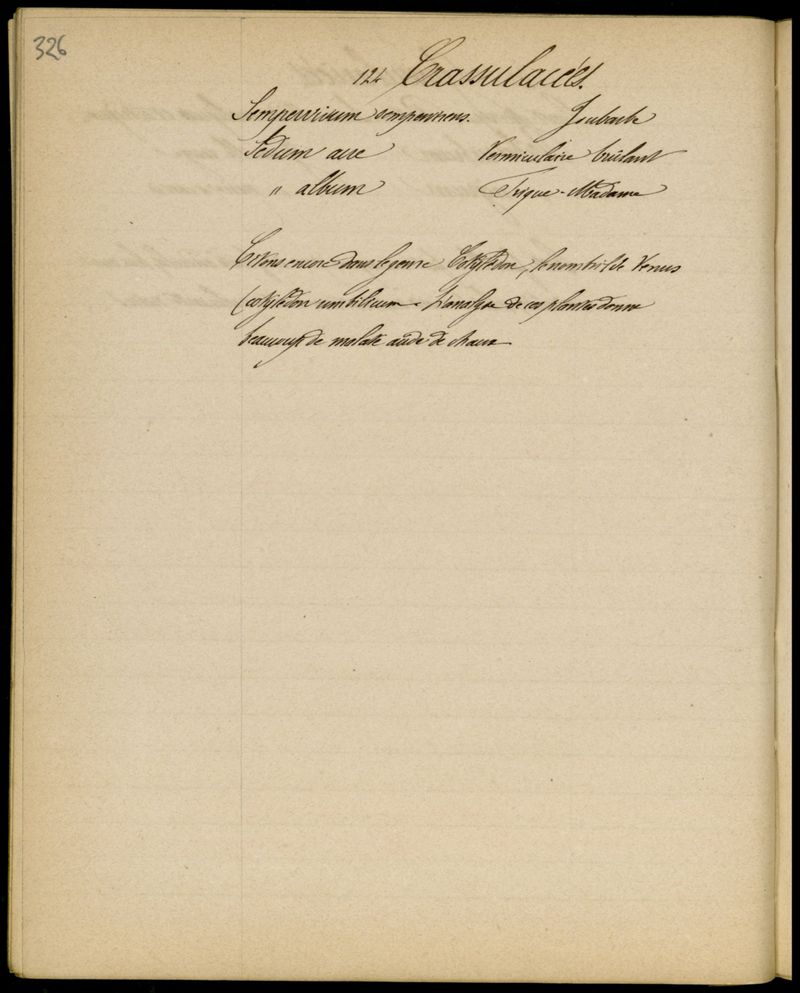 326
124 Crassulacées.
Sempervivum sempervirens. Joubarbe
Sedum acre Vermiculaire brûlant
" album Trique-Madame
Citons encore dans le genre Cotylédon, le nombril de Venus
(cotylédon umbilicum. L'analyse de ces plantes donne
beaucoup de malate acide de chaux